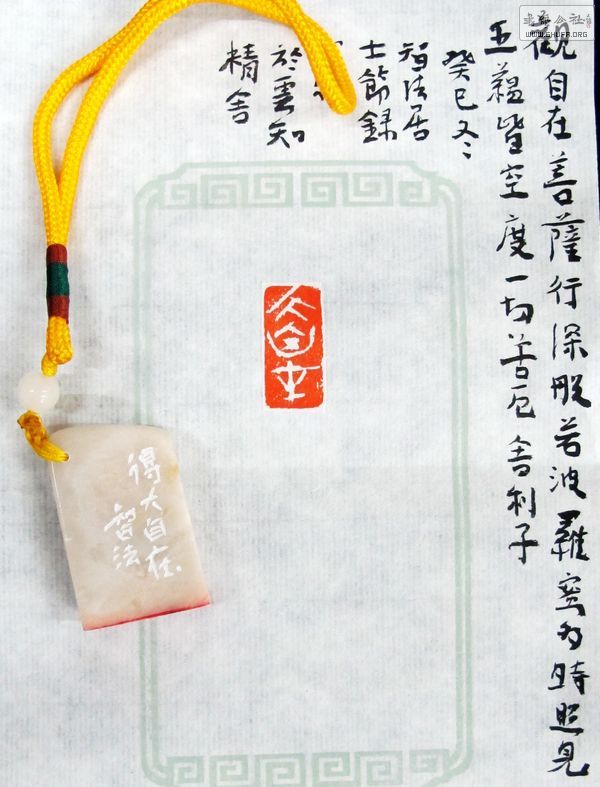 觀自在菩薩行深般若波羅蜜多時照見
五蘊皆空度一切苦厄舍利子
癸巳冬
智法居
士節録
於雲知
精舍
大自在
得大自在.
智法
WWW.GHUFA.ORG